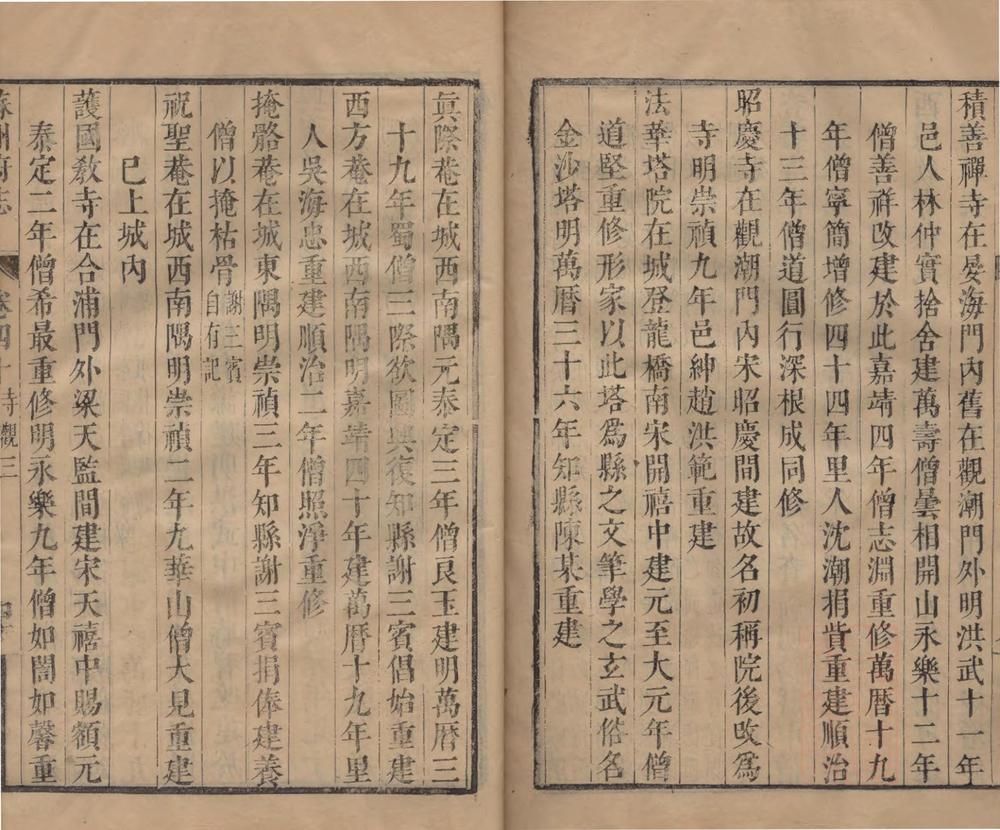 積善禪寺在晏海門內舊在觀潮門外明洪武十一年
邑人林仲實捨舍建萬壽僧曇相開山永樂十二年
僧善祥改建於此嘉靖四年僧志淵重修萬曆十九
年僧寧簡增修四十四年里人沈潮捐貲重建順治
十三年僧道圓行深根成同修
昭慶寺在觀潮門內宋昭慶間建故名初稱院後改爲
寺明崇禎九年邑紳趙洪範重建
法華塔院在城登龍橋南宋開禧中建元至大元年僧
道堅重修形家以此塔爲縣之文筆學之玄武俗名
金沙塔明萬曆三十六年知縣陳某重建
眞際菴在城西南隅元泰定三年僧良玉建明萬曆三
十九年蜀僧三際欲圖興復知縣謝三賓倡始重建
西方菴在城西南隅明嘉靖四十年建萬曆十九年里
人吳海忠重建順治二年僧照淨重修
掩骼菴在城東隅明崇禎三年知縣謝三賓捐俸建養
僧以掩枯骨謝三賓自有記
祝聖菴在城西南隅明崇禎二年九華山僧大見重建
已上城內
護國教寺在合浦門外梁天監間建宋天禧中賜額元
泰定二年僧希最重修明永樂九年僧如誾如馨重
蘇州府志 卷四十 寺觀三